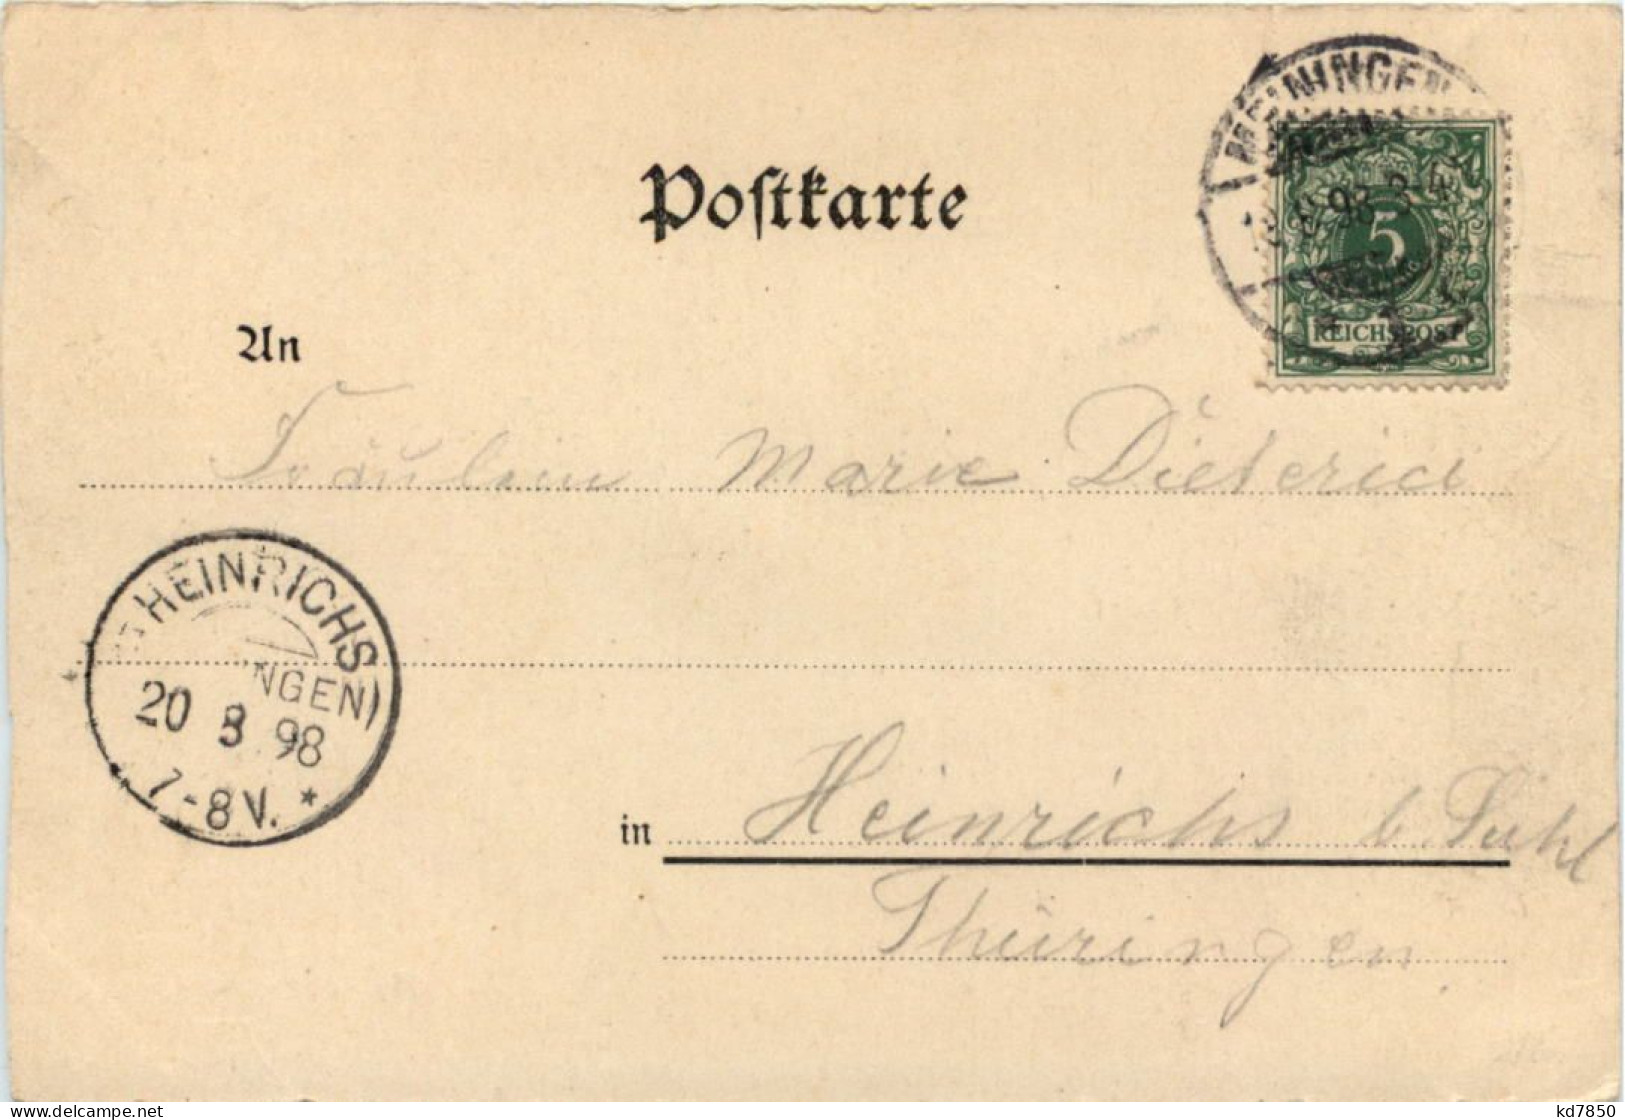 Postkarte
MEININGEN
98 3-4
5
REICHSPOST
An
Fräulein Marie Dieterici
HEINRICHS
NGEN)
20 8 98
7-8V. *
in Heinrichs b. Suhl
Thüringen
www.delcampe.net
kd7850